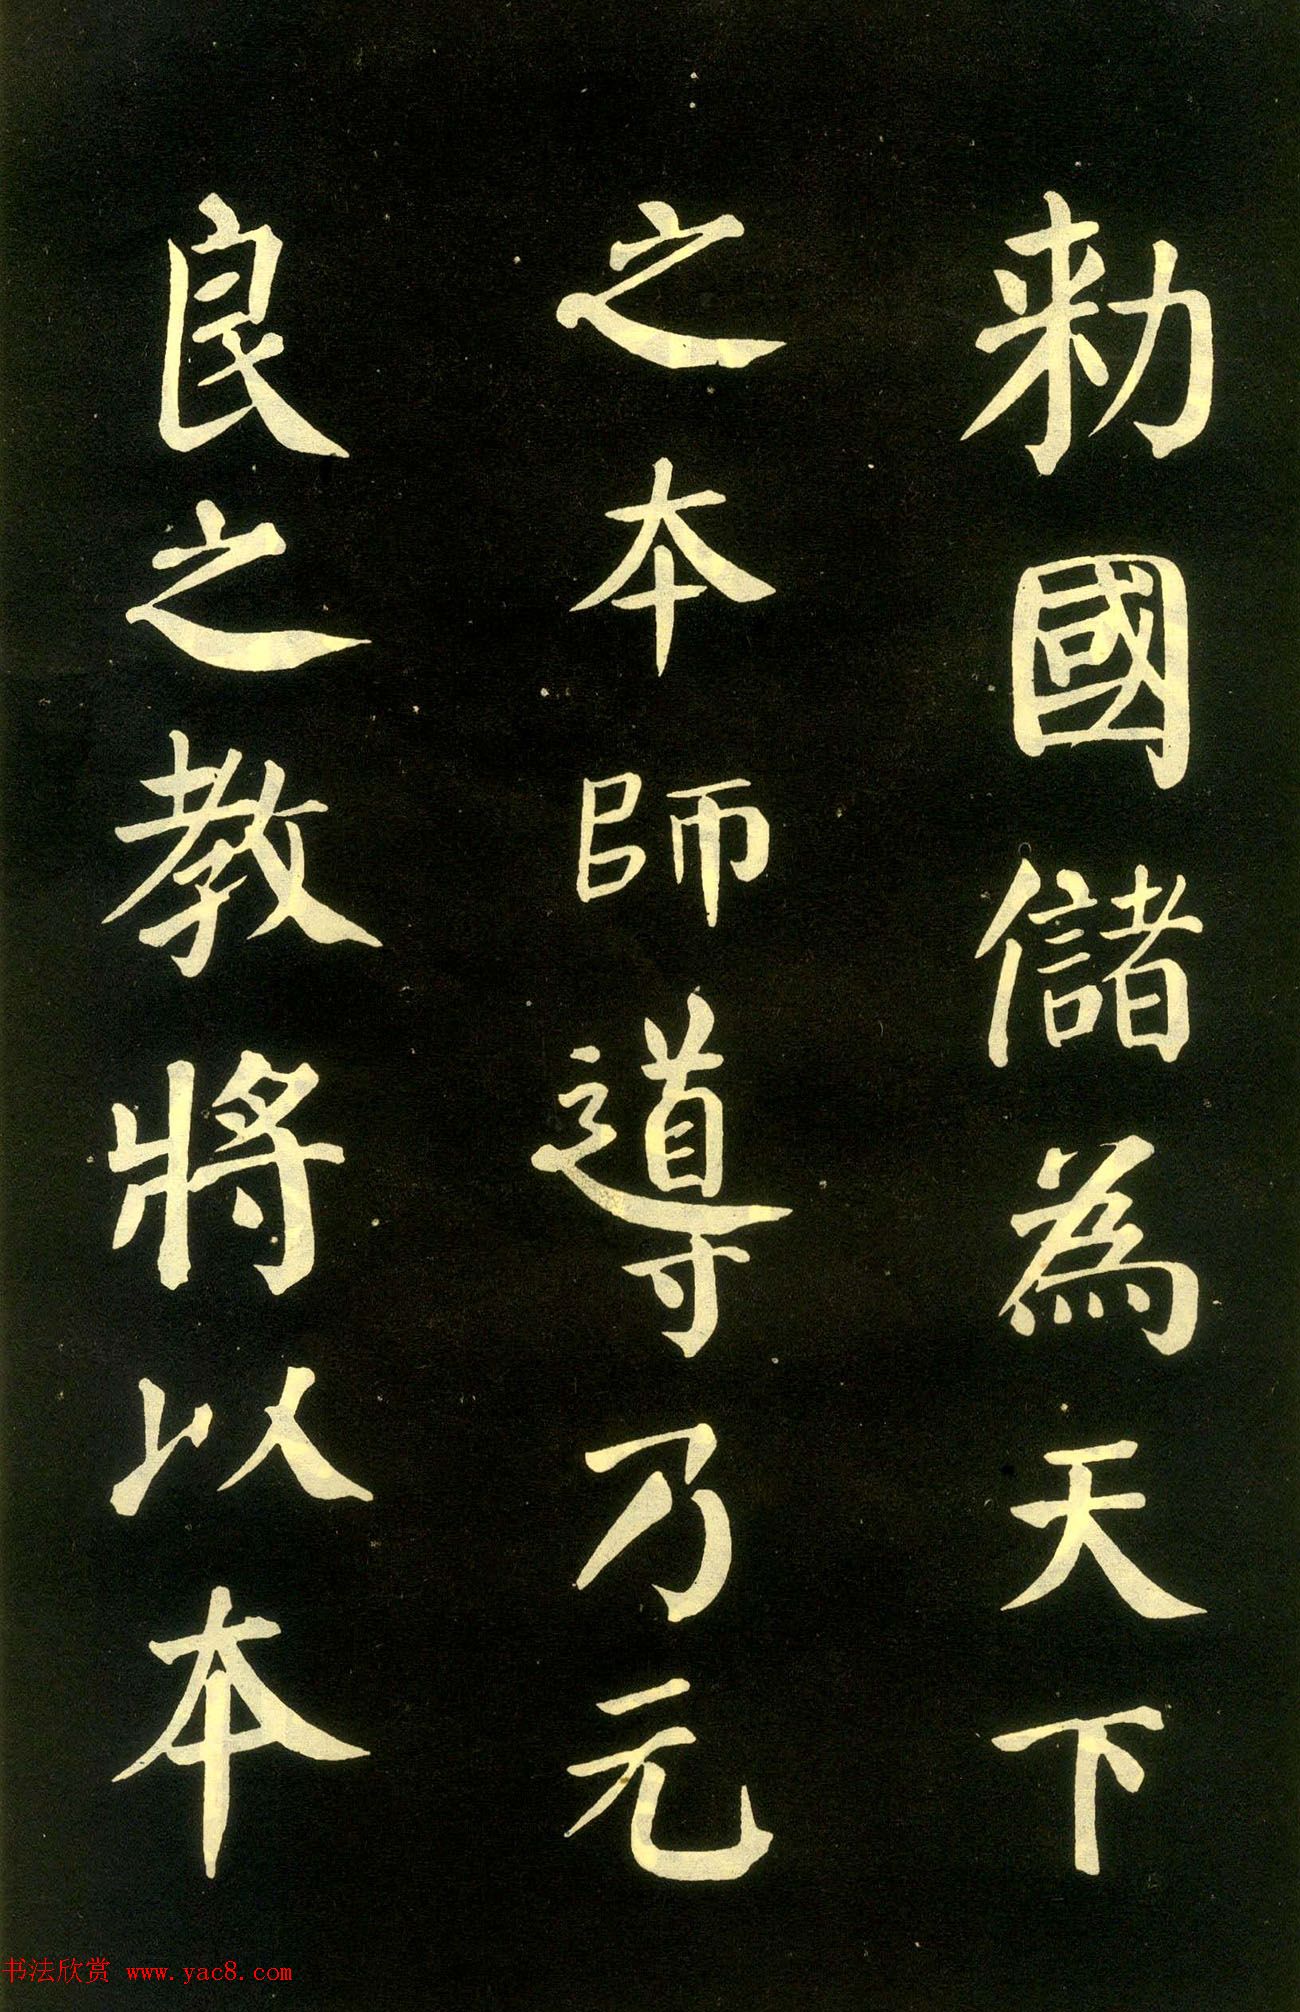 勑國儲為天下
之本師導乃元
良之教將以本
书法欣赏 www.yac8.com